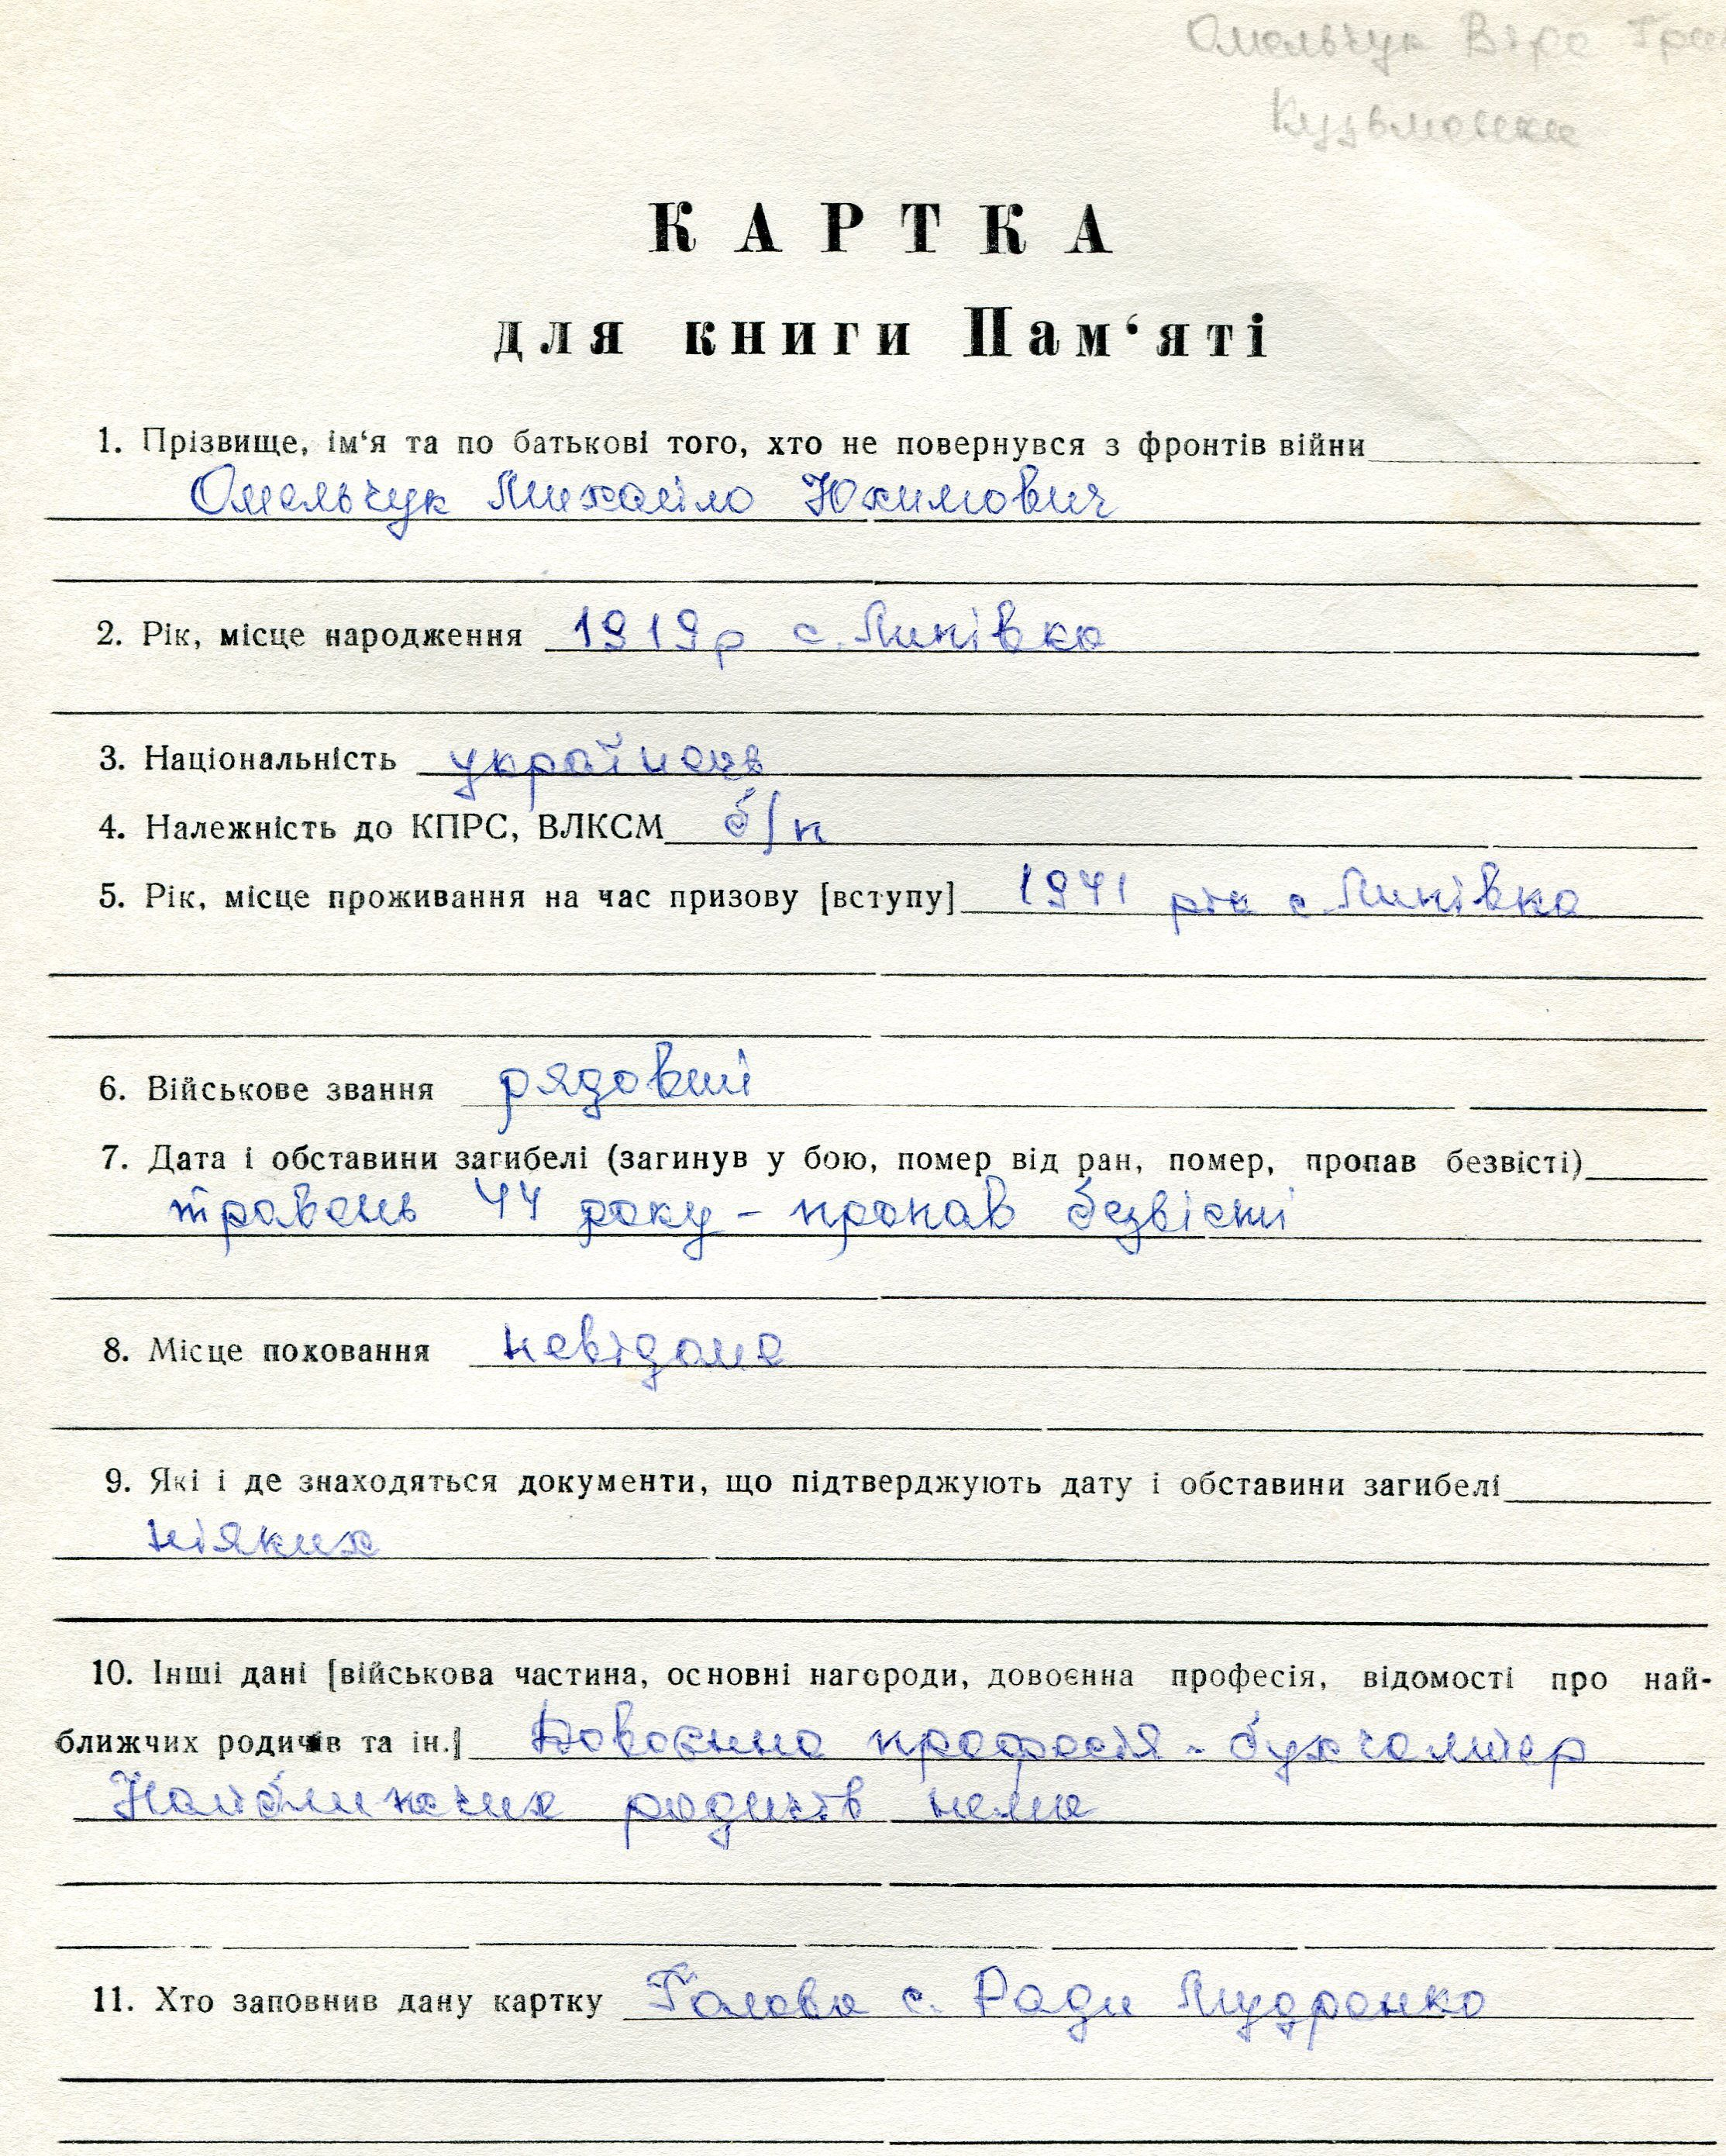 Омельчук Віра
К А Р Т К А
для книги Пам‘яті
1. Прізвище, ім‘я та по батькові того, хто не повернувся з фронтів війни
Омельчук Михайло Юхимович
2. Рік, місце народження 1919р с. Линівка
3. Національність українець
4. Належність до КПРС, ВЛКСМ б/п
5. Рік, місце проживання на час призову [вступу] 1941 рік с. Линівка
6. Військове звання рядовий
7. Дата і обставини загибелі (загинув у бою, помер від ран, помер, пропав безвісті)
травень 44 року - пропав безвісті
8. Місце поховання невідоме
9. Які і де знаходяться документи, що підтверджують дату і обставини загибелі
ніяких
10. Інші дані [військова частина, основні нагороди, довоєнна професія, відомості про най-
ближчих родичів та ін.] Довоєнна професія - бухгалтер
Найближчих родичів нема
11. Хто заповнив дану картку Голова с. Ради Мудренко